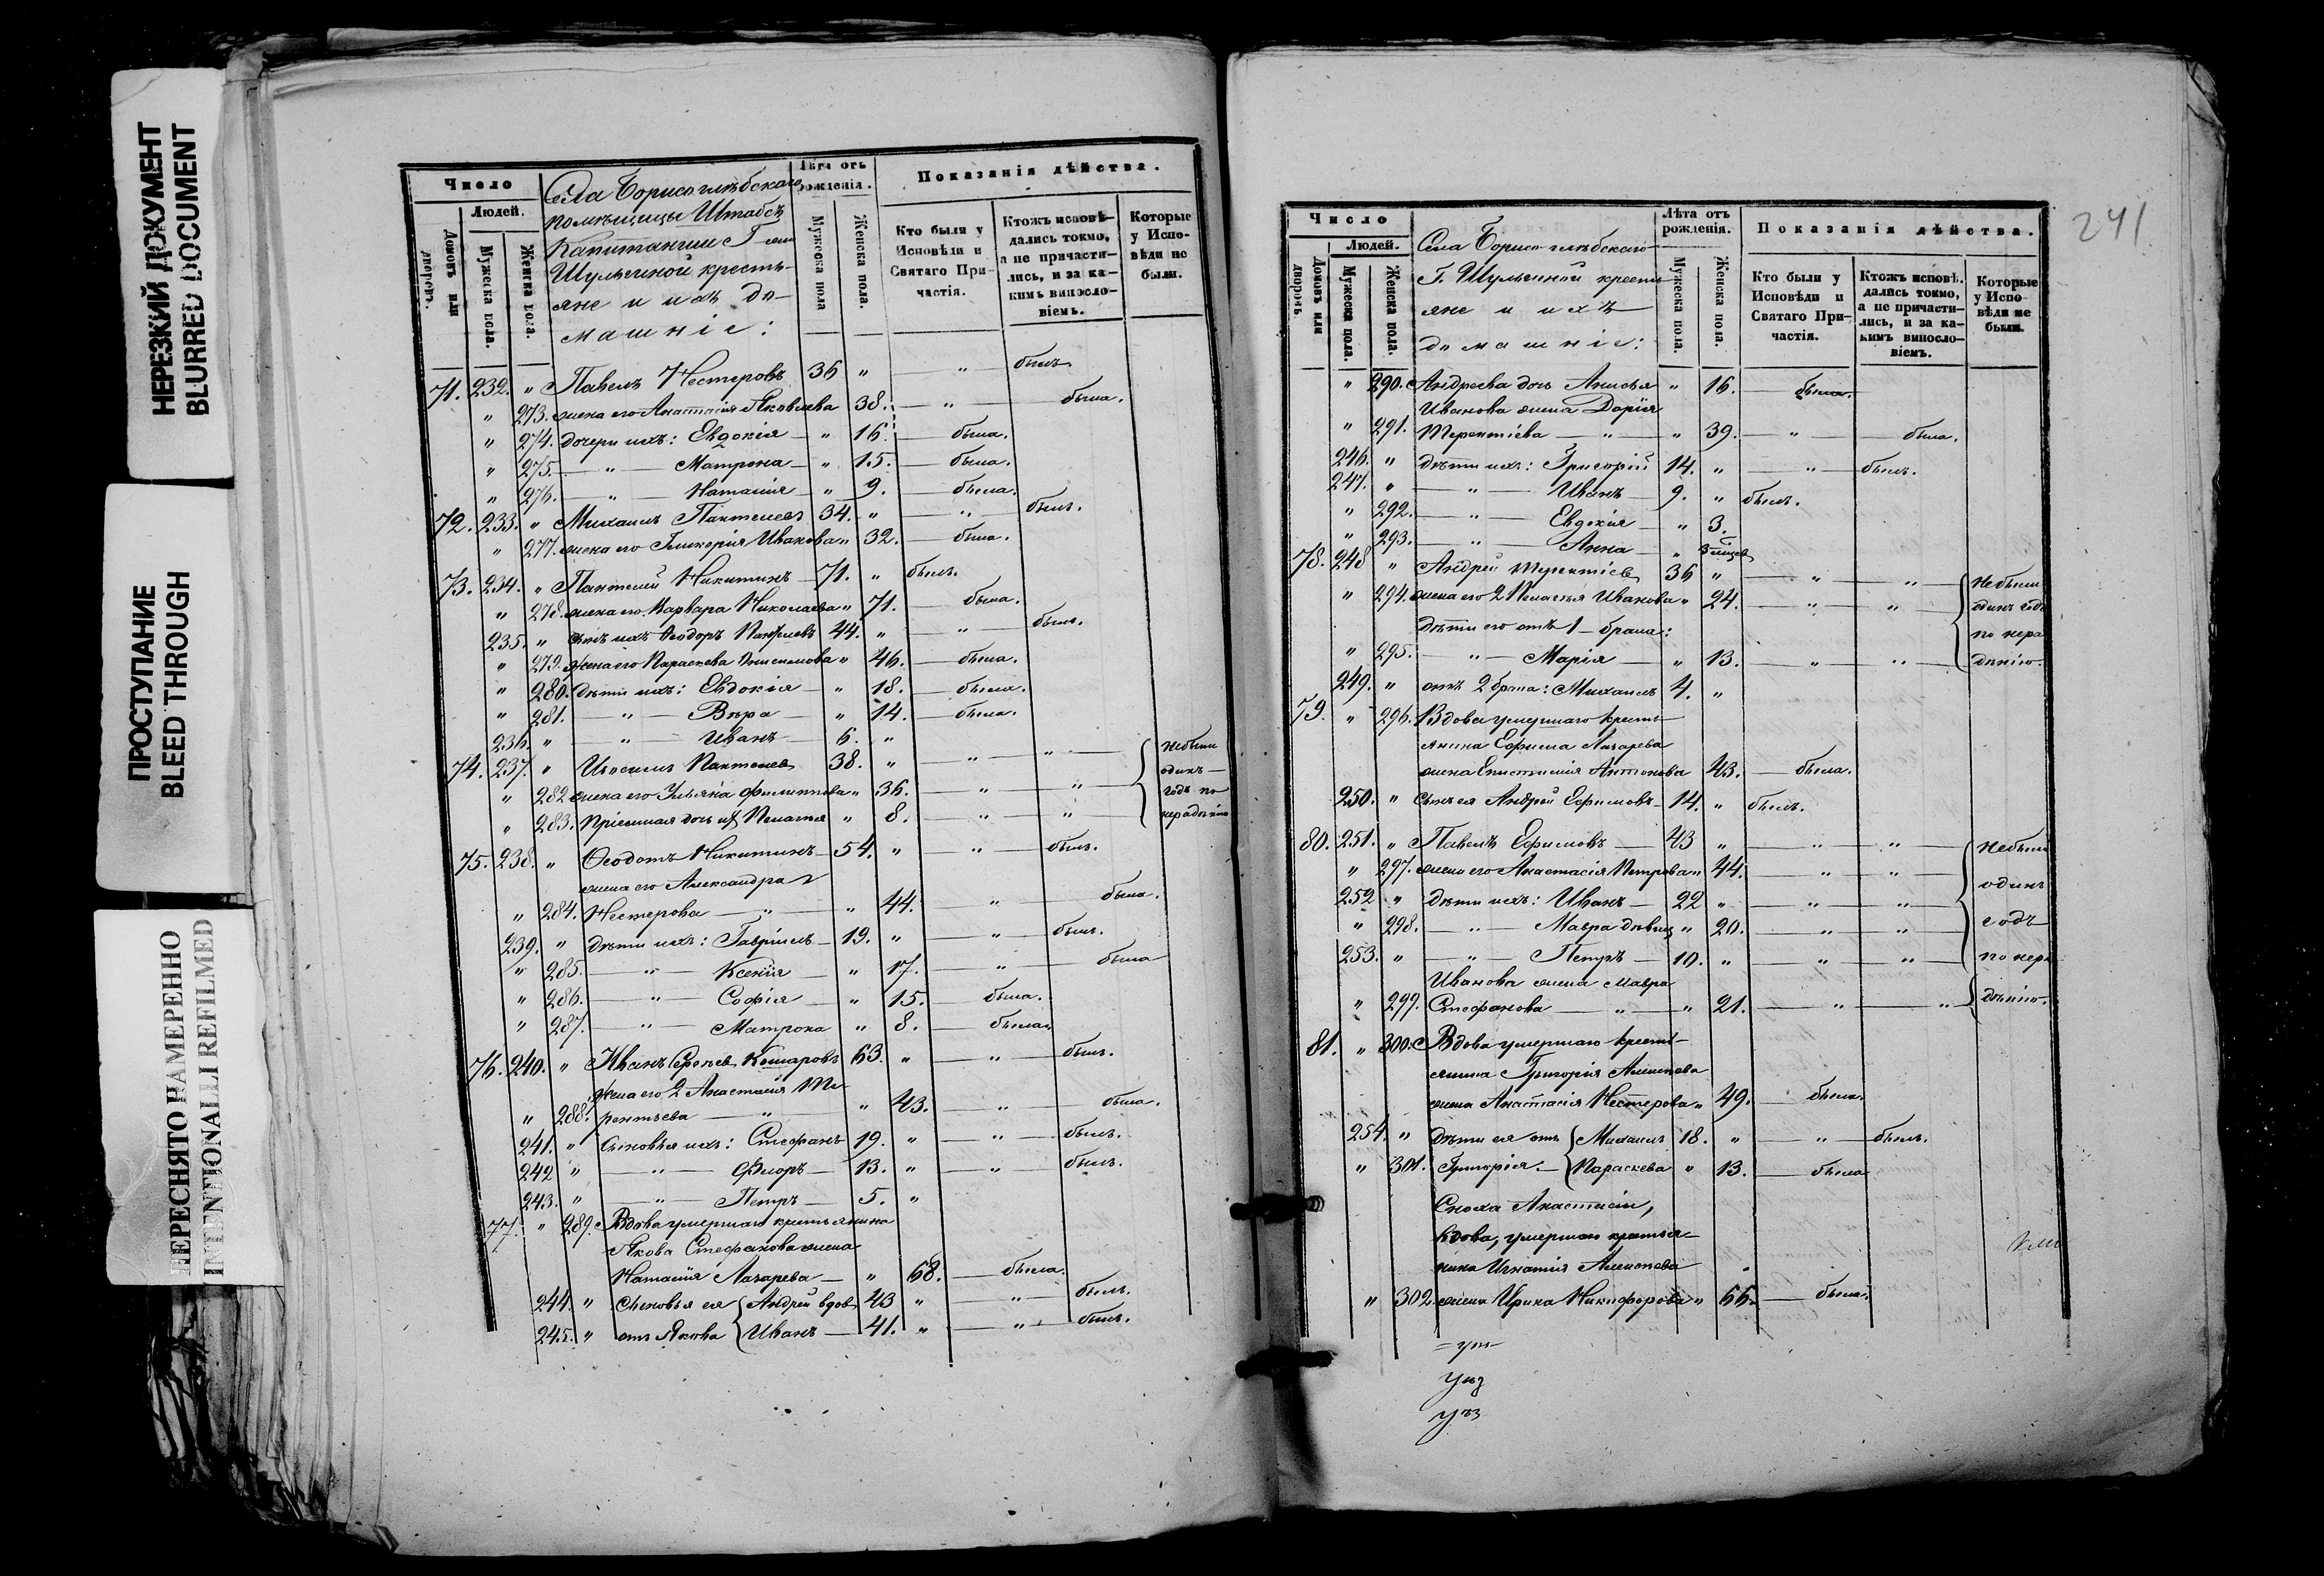 НЕРЕЗКИЙ ДОКУМЕНТ
BLURRED DOCUMENT
ПРОСТУПАНИЕ
BLEED THROUGH
ПЕРЕСНЯТО НАМЕРЕННО
INTENTIONALLI REFILMED
Число
Людей.
Домовъ или дворовъ.
Мужеска пола.
Женска пола.
Села Борисоглѣбскаго
помѣщицы Штабсъ
Капитанши Г
Шульгиной кресть-
яне и ихъ до-
машніе:
Лѣта отъ рожденія.
Мужеска пола
Женска пола.
Показанія дѣйства.
Кто были у Исповѣди и Святаго При-частія.
Ктожъ исповѣ-дались токмо, а не причасти-лись, и за ка-кимъ винословіемъ.
Которые у Испо-вѣди не были.
71. 232. " Павелъ Нестеровъ 36 " " былъ
" 273. жена его Анастасія Яковлева 38. " была.
" 274. дочери ихъ: Евдокія " 16. была.
" 275. " Матрона " 15. была.
" 276. " Наталія " 9. была.
72. 233. " Михаилъ Пантелеевъ 34. " " былъ.
" 277. жена его Гликерія Иванова " 32. была.
73. 234. " Пантелей Никитинъ 71. " былъ.
" 278. жена его Варвара Николаева " 71. была.
235. " сынъ ихъ Ѳеодоръ Пантелеевъ 44. " " былъ.
" 279. жена его Параскева Анисимова " 46. была.
" 280. дѣти ихъ: Евдокія " 18. была.
" 281. " Вѣра " 14. была.
236. " " Иванъ 6. "
74. 237. " Пантелеев 38. " " " небыли
" 282 жена его Ульяна Филиппова " 36. " " одинъ годъ по
" 283. Пріемная дочь их Пелагея " 8. " " нерадѣнію
75. 238. " Ѳеодотъ Никитинъ 54. " " былъ.
жена его Александра
" 284. Нестерова " " 44. " была.
239. " дѣти ихъ: Гавріилъ 19. " " былъ.
" 285. " Ксенія " 17. " была
" 286. " Софія " 15. была.
" 287. " Матрона " 8. была.
76. 240. " Иванъ Сергѣевъ Комаровъ 63. " " былъ.
жена его 2 Анастасія Те-
" 288. рентьева " " 43. " была.
241. " Сыновья ихъ: Стефанъ 19. " " былъ.
242 " " Флоръ 13. " " былъ.
243. " " Петръ 5. "
77. " 289. Вдова умершаго крестьянина
Якова Стефанова жена
Наталія Лазарева " 68. была.
244. " Сыновья ея { Андрей вдов 43 " " былъ.
245. " отъ Якова { Иванъ 41. " " былъ.
241
Число
Людей.
Домовъ или дворовъ.
Мужеска пола.
Женска пола.
Села Борисоглѣбскаго
Г. Шульгиной кресть
яне и ихъ
домашніе:
Лѣта отъ рожденія.
Мужеска пола.
Женска пола.
Показанія дѣйства.
Кто были у Исповѣди и Святаго При-частія.
Ктожъ исповѣ. дались токмо, а не причасти-лись, и за ка-кимъ винословіемъ.
Которые у Испо-вѣди не были.
" 290. Андреева дочь Анисья " 16. была.
Иванова жена Дарія
" 291. Терентіева " " 39. " была.
246. " дѣти ихъ: Григорій 14. " " былъ.
247. " " Иванъ 9. " былъ.
" 292. " Евдокія " 3.
" 293. " Анна " 3 мѣсяц
78. 248 " Андрей Терентіевъ 36 " " " небыли
" 294. жена его 2 Пелагея Иванова " 24. " " одинъ годъ
дѣти его отъ 1 брака: по нера
" 295. " Марія " 13. " " дѣнію.
249. " отъ 2 брака: Михаилъ 4. "
79. " 296. Вдова умершаго кресть-
янина Ефима Лазарева
жена Епистимія Антонова 43. была.
250. " Сынъ ея Андрей Ефимовъ 14. " былъ.
80. 251. " Павелъ Ефимовъ 43 " " " небыли
" 297. жена его Анастасія Петрова " 44. " " одинъ
252 " дѣти ихъ: Иванъ 22 " " "
" 298. " Мавра дѣвиц " 20. " " годъ
253. " " Петръ 10. " " " по нера
Иванова жена Мавра
" 299. Стефанова " " 21. " " дѣнію.
81. " 300. Вдова умершаго кресть-
янина Григорія Алексѣева
жена Анастасія Нестерова " 49. была.
254. " дѣти ея отъ { Михаилъ 18. " " былъ.
" 301. Григорія { Параскева " 13. была
Сноха Анастасіи,
вдова, умершаго крестья-
нина Игнатія Алексѣева
" 302. жена Ирина Никифорова " 66. была.